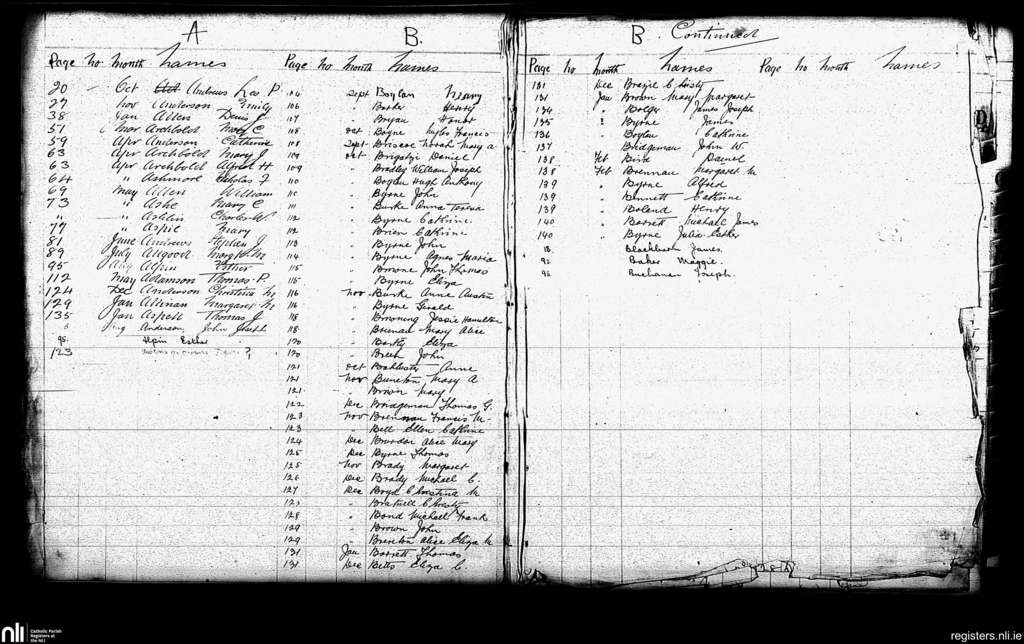 A
Page no month names
20 Oct Andrews Leo P.
27 Nov Anderson Emily
38 Jan Allen Denis J
51 Mar Archbold Mary C
59 Apr Anderson Catherine
63 Apr Archbold Mary J
63 Apr Archbold Alfred H
64 " Ashmore Nicholas F
69 May Allen William
73 " Ashe Mary C
" " Ashlin Charles W
77 " Aspil Mary
81 June Andrews Stephen J
89 July Allgood Mary
95 Aug Alpin Esther
112 May Adamson Thomas P.
124 Dec Anderson Christina M
129 Jan Allman Margaret M
135 Jan Aspell Thomas J
Anderson John Joseph
95 Alpin Esther
123
B.
Page no month names
104 Sept Boylan Henry
106 " Barker Henry
107 " Bryan
108 Oct Boyne Myles Francis
108 Sept Briscoe Norah Mary A
109 Oct Brigatzi Daniel
109 " Bradley William Joseph
110 " Boylan Hugh Anthony
110 " Byrne John
111 " Burke Anna Teresa
112 " Byrne Cathrine
112 " Brien Cathrine
113 " Byrne John
114 " Byrne Agnes Maria
115 " Browne John Thomas
115 " Byrne Eliza
116 Nov Burke Anne
116 " Byrne Gerald
118 " Browning Jessie Hamilton
118 " Brennan Mary Alice
120 " Eliza
120 " Breen John
121 Oct Anne
121 Nov Mary A
121 " Brown Mary
122 Dec Bridgeman Thomas G.
123 Nov Brennan Francis M.
123 " Bell Ellen Cathrine
124 Dec Alice Mary
125 Dec Byrne Thomas
125 Nov Brady Margaret
126 Dec Brady Michael C
127 Dec Boyd Christina M
127 " Christy
128 " Bond Michael Frank
129 " Brown John
129 " Brereton Alice Eliza M
131 Jan Barrett Thomas
131 Dec Betts Eliza C.
B Continued
Page no month names Page no month names
131 Dec Brazil Christy
131 Jan Brown Mary Margaret
134 " Bolger James Joseph
135 Byrne James
136 " Boylan Cathrine
137 " Bridgeman John W.
138 Feb Daniel
138 Feb Brennan Margaret M
139 " Byrne Alfred
139 " Bennett Cathrine
139 " Boland Henry
140 " Barrett Michael James
140 " Byrne Julia Esther
Blackburn James.
92 Baker Maggie.
96 Buchanan Joseph.
nli
Catholic Parish
Registers at
the NLI
registers.nli.ie